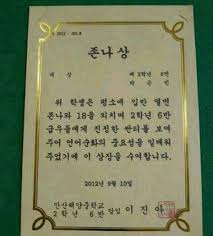 존나상
대상
제2학년 6반
위 학생은 평소에 입만 열면
존나와 18을 외치며 2학년 6반
급우들에게 진정한 싼티를 보여
주어 언어순화의 중요성을 일깨워
주었기에 이 상장을 수여합니다.
2012년 9월 10일
안산해양중학교
2학년 6반 담임 이진아